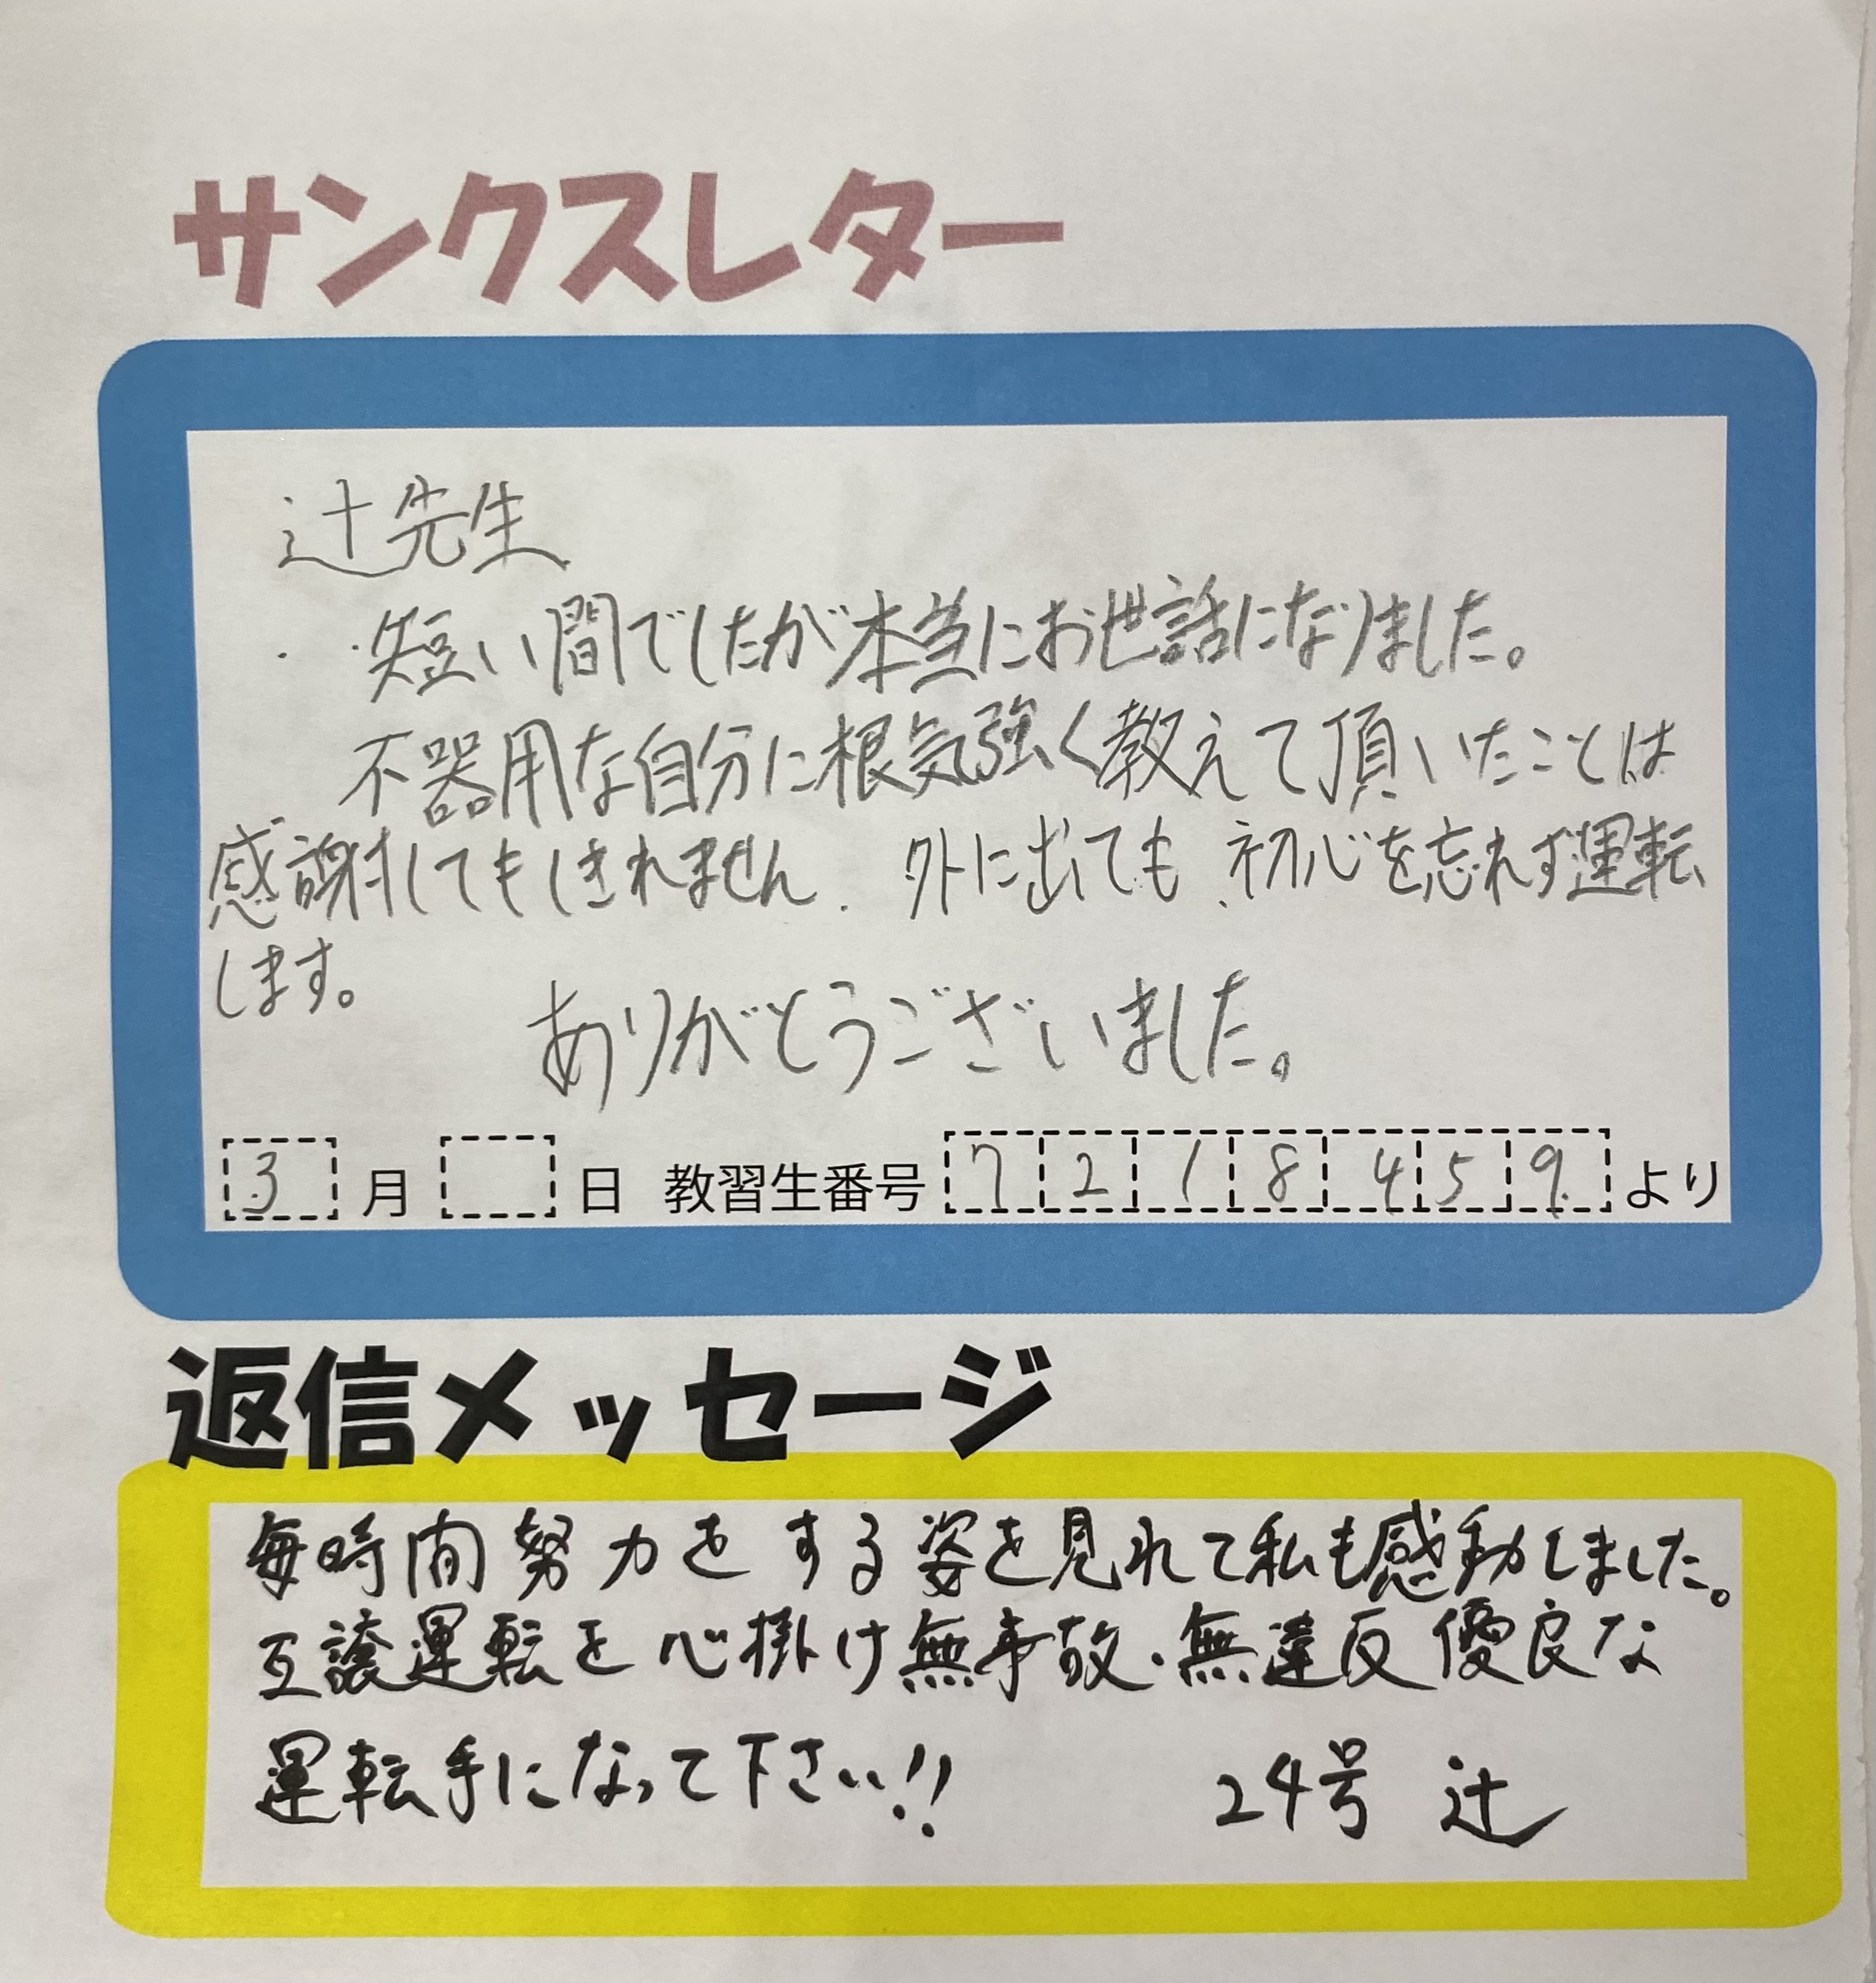 サンクスレター
辻先生
短い間でしたが本当にお世話になりました。
不器用な自分に根気強く教えて頂いたことは
感謝してもしきれません. 外に出ても、初心を忘れず運転
します。
ありがとうございました。
3月 日 教習生番号 7218459 より
返信メッセージ
毎時間努力をする姿を見れて私も感動しました。
互譲運転を心掛け無事故・無違反優良な
運転手になって下さい!!  24号 辻